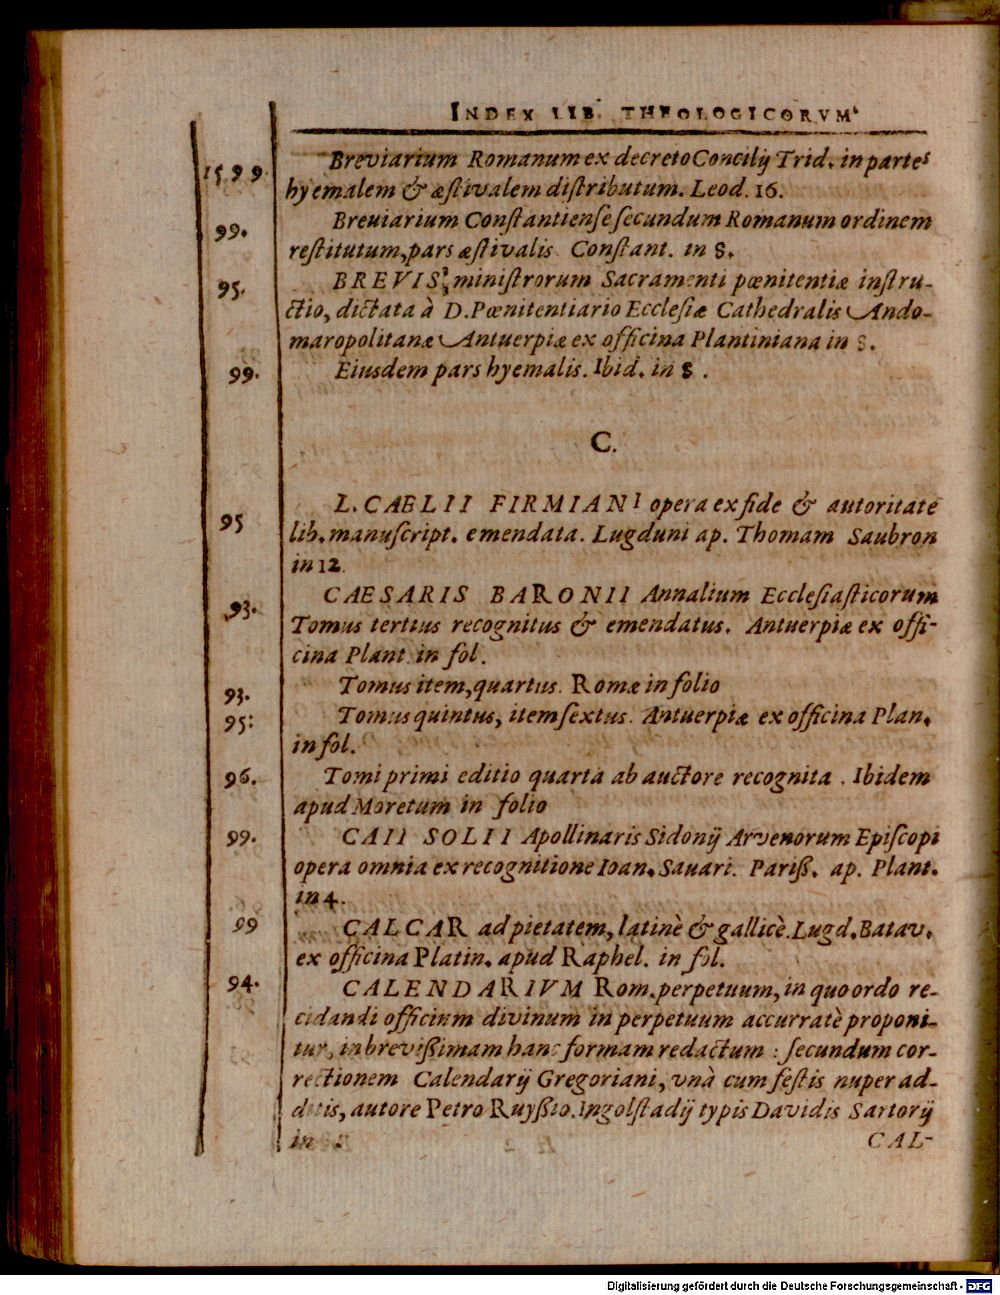 INDEX LIB. THEOLOGICORVM
1599 Breviarium Romanum ex decreto Concilij Trid. in partes
hyemalem & æſtivalem diſtributum. Leod. 16.
99. Breuiarium Conſtantienſe ſecundum Romanum ordinem
reſtitutum, pars æſtivalis Conſtant. in 8.
95. BREVIS miniſtrorum Sacramenti pœnitentiæ inſtru-
ctio, dictata à D. Pœnitentiario Eccleſiæ Cathedralis Ando-
maropolitanæ Antuerpiæ ex officina Plantiniana in 8.
99. Eiusdem pars hyemalis. Ibid. in 8.
C.
95 L. CAELII FIRMIANI opera ex fide & autoritate
lib. manuſcript. emendata. Lugduni ap. Thomam Saubron
in 12.
93. CAESARIS BARONII Annalium Eccleſiaſticorum
Tomus tertius recognitus & emendatus. Antuerpiæ ex offi-
cina Plant. in fol.
93. Tomus item, quartus. Romæ in folio
95: Tomus quintus, item ſextus. Antuerpiæ ex officina Plan.
in fol.
96. Tomi primi editio quarta ab auctore recognita. Ibidem
apud Moretum in folio
99. CAII SOLII Apollinaris Sidonij Arvenorum Epiſcopi
opera omnia ex recognitione Ioan. Sauari. Pariſ. ap. Plant.
in 4.
99 CALCAR ad pietatem, latinè & gallicè. Lugd. Batav.
ex officina Platin. apud Raphel. in fol.
94. CALENDARIVM Rom. perpetuum, in quo ordo re-
cidandi officium divinum in perpetuum accurratè proponi-
tur, in breviſſimam hanc formam redactum : ſecundum cor-
rectionem Calendarij Gregoriani, vnà cum feſtis nuper ad-
ditis, autore Petro Ruyſſio. Ingolſtadij typis Davidis Sartorij
in .
CAL-
Digitalisierung gefördert durch die Deutsche Forschungsgemeinschaft - DFG